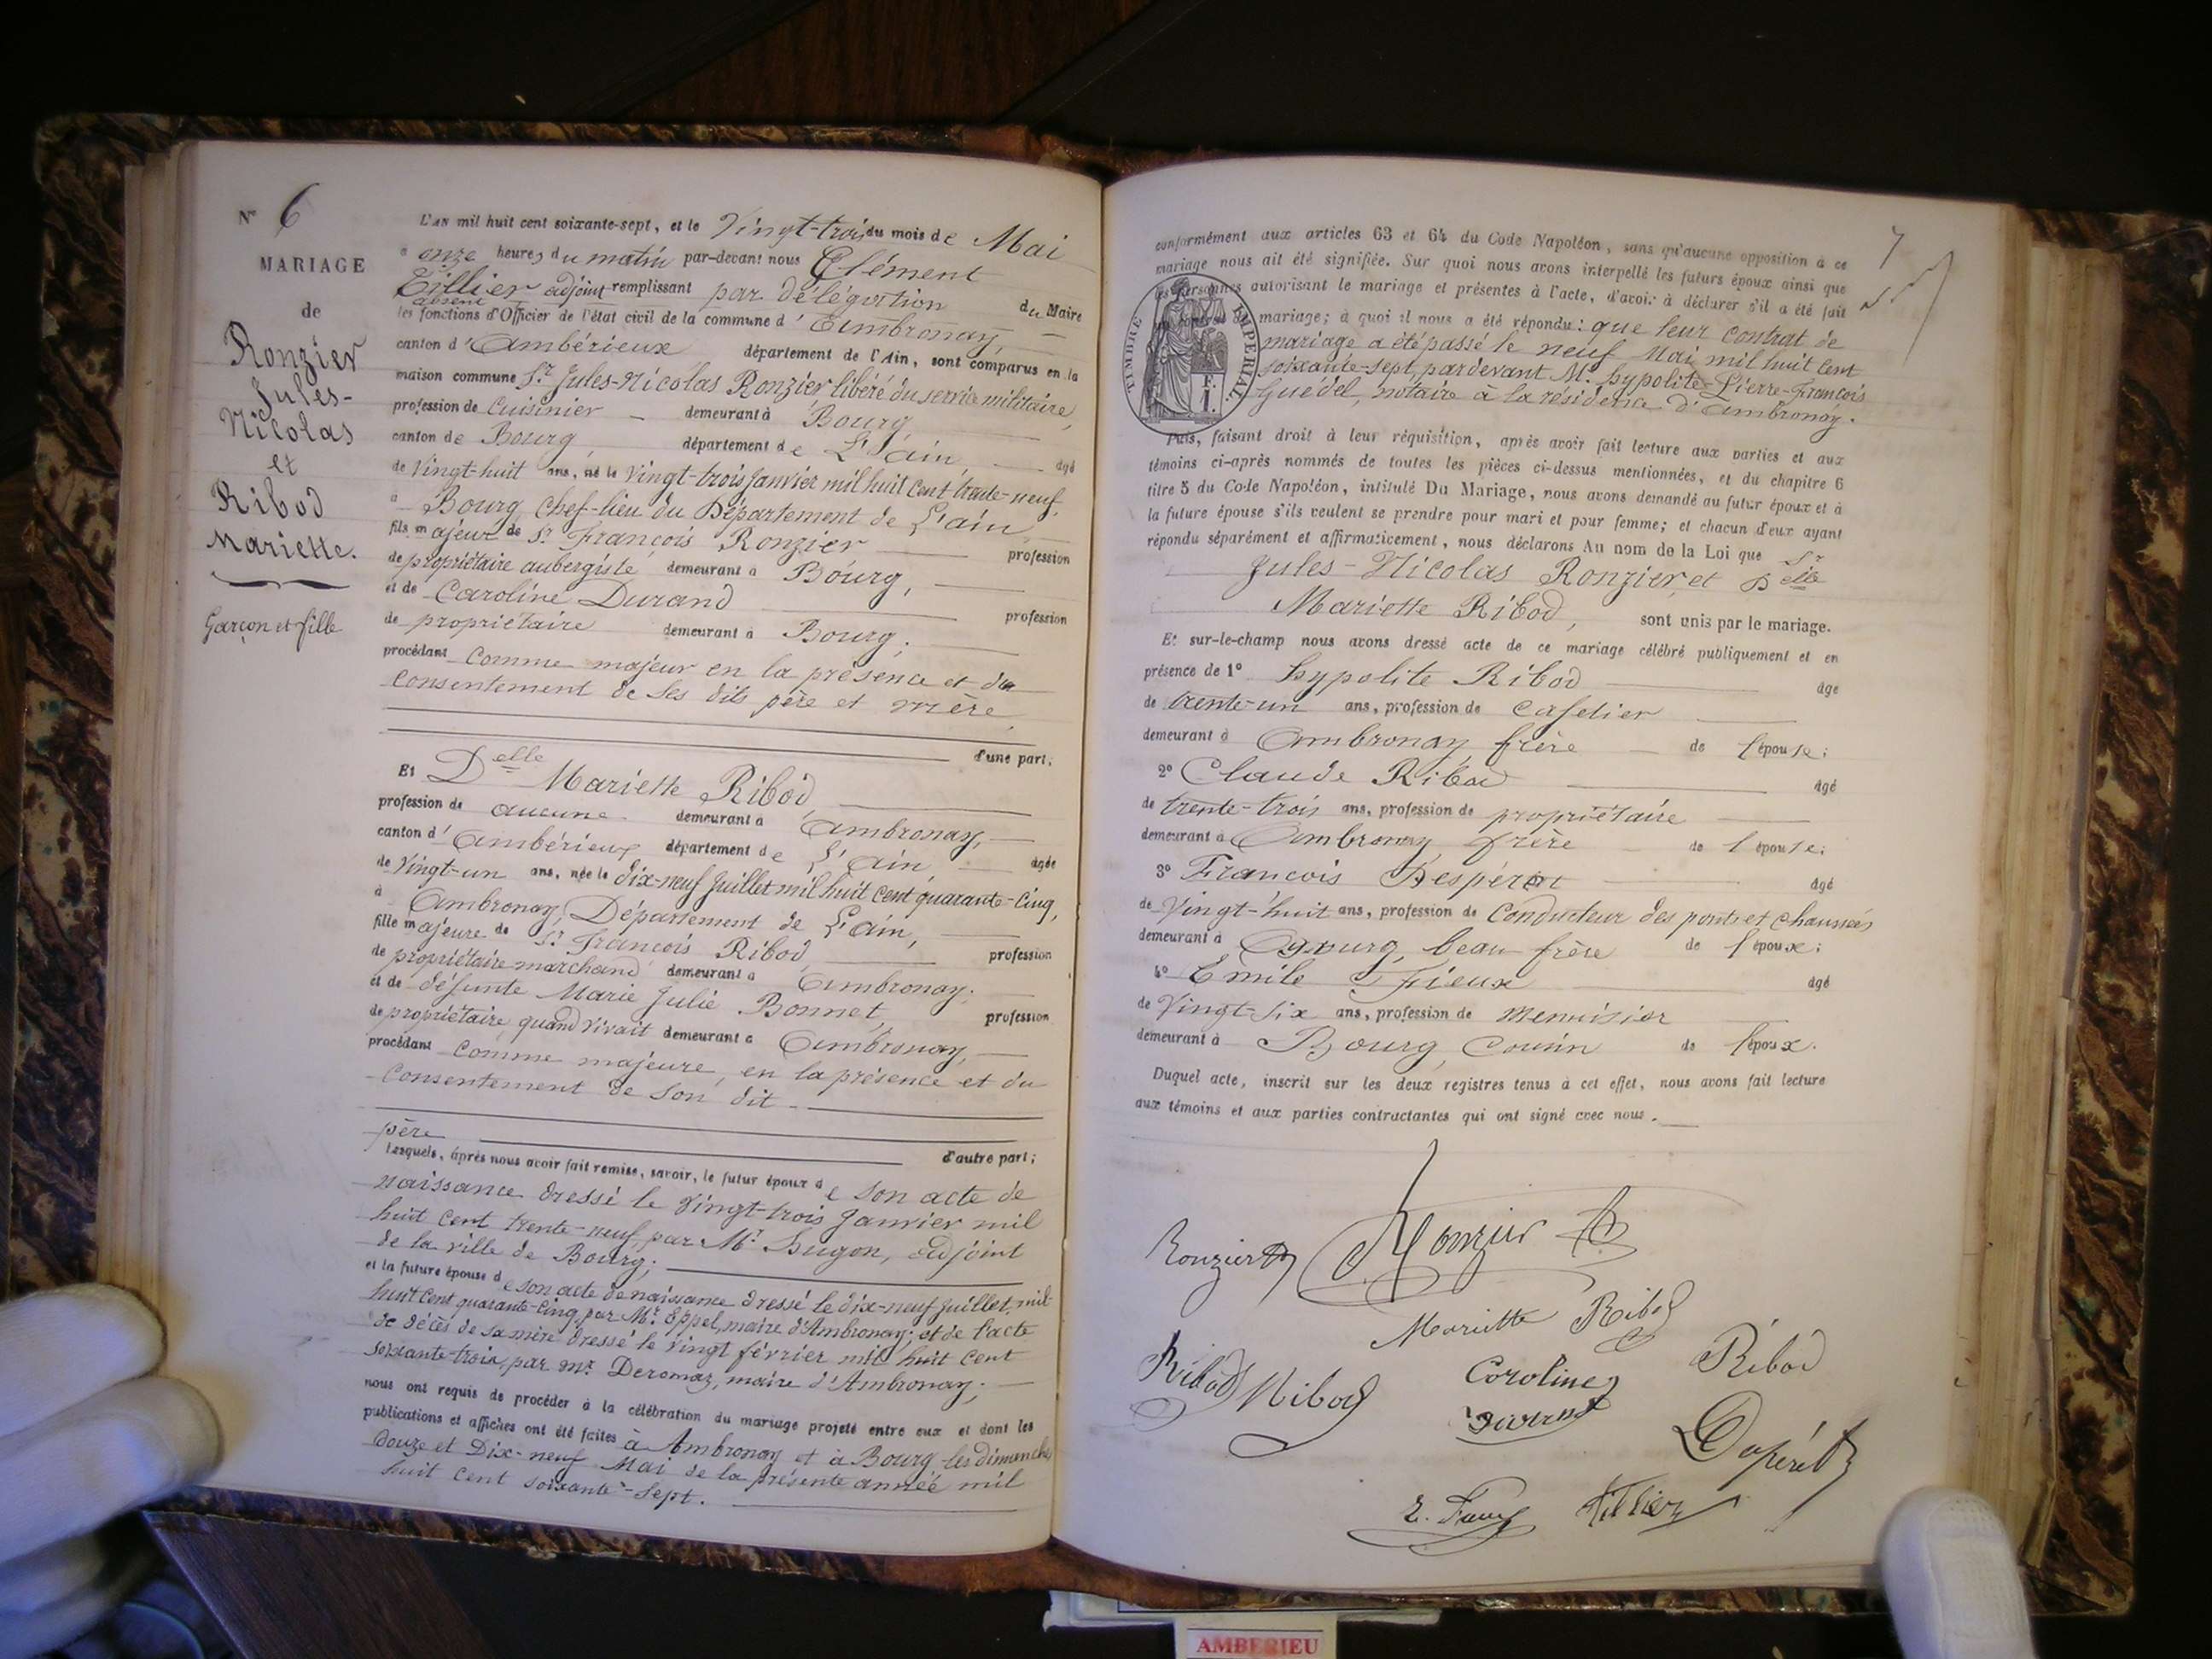 N° 6
MARIAGE
de
Ronzier
Jules-
Nicolas
et
Ribod
Mariette.
Garçon et fille
L'AN mil huit cent soixante-sept, et le Vingt-trois du mois de Mai
à onze heures du matin par-devant nous Clément
Tillier adjoint remplissant par délégation du Maire
absent
les fonctions d'Officier de l'état civil de la commune d'Ambronay,
canton d'Ambérieux département de l'Ain, sont comparus en la
maison commune Sr. Jules-Nicolas Ronzier, libéré du service militaire,
profession de Cuisinier demeurant à Bourg
canton de Bourg, département de L'Ain, âgé
de Vingt-huit ans, né le Vingt-trois Janvier mil huit cent trente-neuf,
à Bourg, chef-lieu du Département de L'ain,
fils majeur de Sr. François Ronzier profession
de propriétaire aubergiste demeurant à Bourg,
et de Caroline Durand profession
de propriétaire demeurant à Bourg;
procédant comme majeur en la présence et du
consentement de ses dits père et mère,
d'une part;
Et Delle Mariette Ribod,
profession de aucune demeurant à Ambronay,
canton d'Ambérieux département de L'ain, âgée
de Vingt-un ans, née le dix-neuf Juillet mil huit cent quarante-cinq,
à Ambronay, Département de L'ain,
fille majeure de Sr. François Ribod profession
de propriétaire marchand demeurant à Ambronay;
et de défunte Marie Julie Bonnet, profession
de propriétaire quand vivait demeurant à Ambronay,
procédant comme majeure, en la présence et du
consentement de son dit
père
d'autre part;
Lesquels, après nous avoir fait remise, savoir, le futur époux de son acte de
naissance dressé le Vingt-trois Janvier mil
huit cent trente-neuf, par Mr. Hugon, adjoint
de la ville de Bourg;
et la future épouse de son acte de naissance dressé le dix-neuf juillet, mil
huit cent quarante-cinq, par Mr. Eppel, maire d'Ambronay; et de l'acte
de décès de sa mère dressé le vingt février mil huit cent
soixante-trois, par Mr. Deromaz, maire d'Ambronay;
nous ont requis de procéder à la célébration du mariage projeté entre eux et dont les
publications et affiches ont été faites à Ambronay et à Bourg les dimanches
Douze et Dix-neuf Mai de la présente année mil
huit cent soixante-sept.
7
conformément aux articles 63 et 64 du Code Napoléon, sans qu'aucune opposition à ce
mariage nous ait été signifiée. Sur quoi nous avons interpellé les futurs époux ainsi que
les personnes autorisant le mariage et présentes à l'acte, d'avoir à déclarer s'il a été fait
mariage; à quoi il nous a été répondu: que leur contrat de
mariage a été passé le neuf Mai mil huit cent
soixante-sept, pardevant Me. Hypolite-Pierre-François
Guédel, notaire à la résidence d'Ambronay.
TIMBRE IMPERIAL
F.
1.
Puis, faisant droit à leur réquisition, après avoir fait lecture aux parties et aux
témoins ci-après nommés de toutes les pièces ci-dessus mentionnées, et du chapitre 6
titre 5 du Code Napoléon, intitulé Du Mariage, nous avons demandé au futur époux et à
la future épouse s'ils veulent se prendre pour mari et pour femme; et chacun d'eux ayant
répondu séparément et affirmativement, nous déclarons Au nom de la Loi que Sr
Jules-Nicolas Ronzier, et Delle
Mariette Ribod, sont unis par le mariage.
Et sur-le-champ nous avons dressé acte de ce mariage célébré publiquement et en
présence de 1° Hypolite Ribod âgé
de trente-un ans, profession de cafetier
demeurant à Ambronay, frère de l'épouse;
2° Claude Ribod âgé
de trente-trois ans, profession de propriétaire
demeurant à Ambronay frère de l'épouse;
3° François Despéret âgé
de Vingt-huit ans, profession de Conducteur des ponts et chaussées
demeurant à Bourg, beau frère de l'époux;
4° Emile Fieux âgé
de Vingt-six ans, profession de Menuisier
demeurant à Bourg, Cousin de l'époux.
Duquel acte, inscrit sur les deux registres tenus à cet effet, nous avons fait lecture
aux témoins et aux parties contractantes qui ont signé avec nous.
Ronzier
Ronzier
Mariette Ribod
Ribod Ribod Caroline Ribod
Durand
Tillier
AMBERIEU